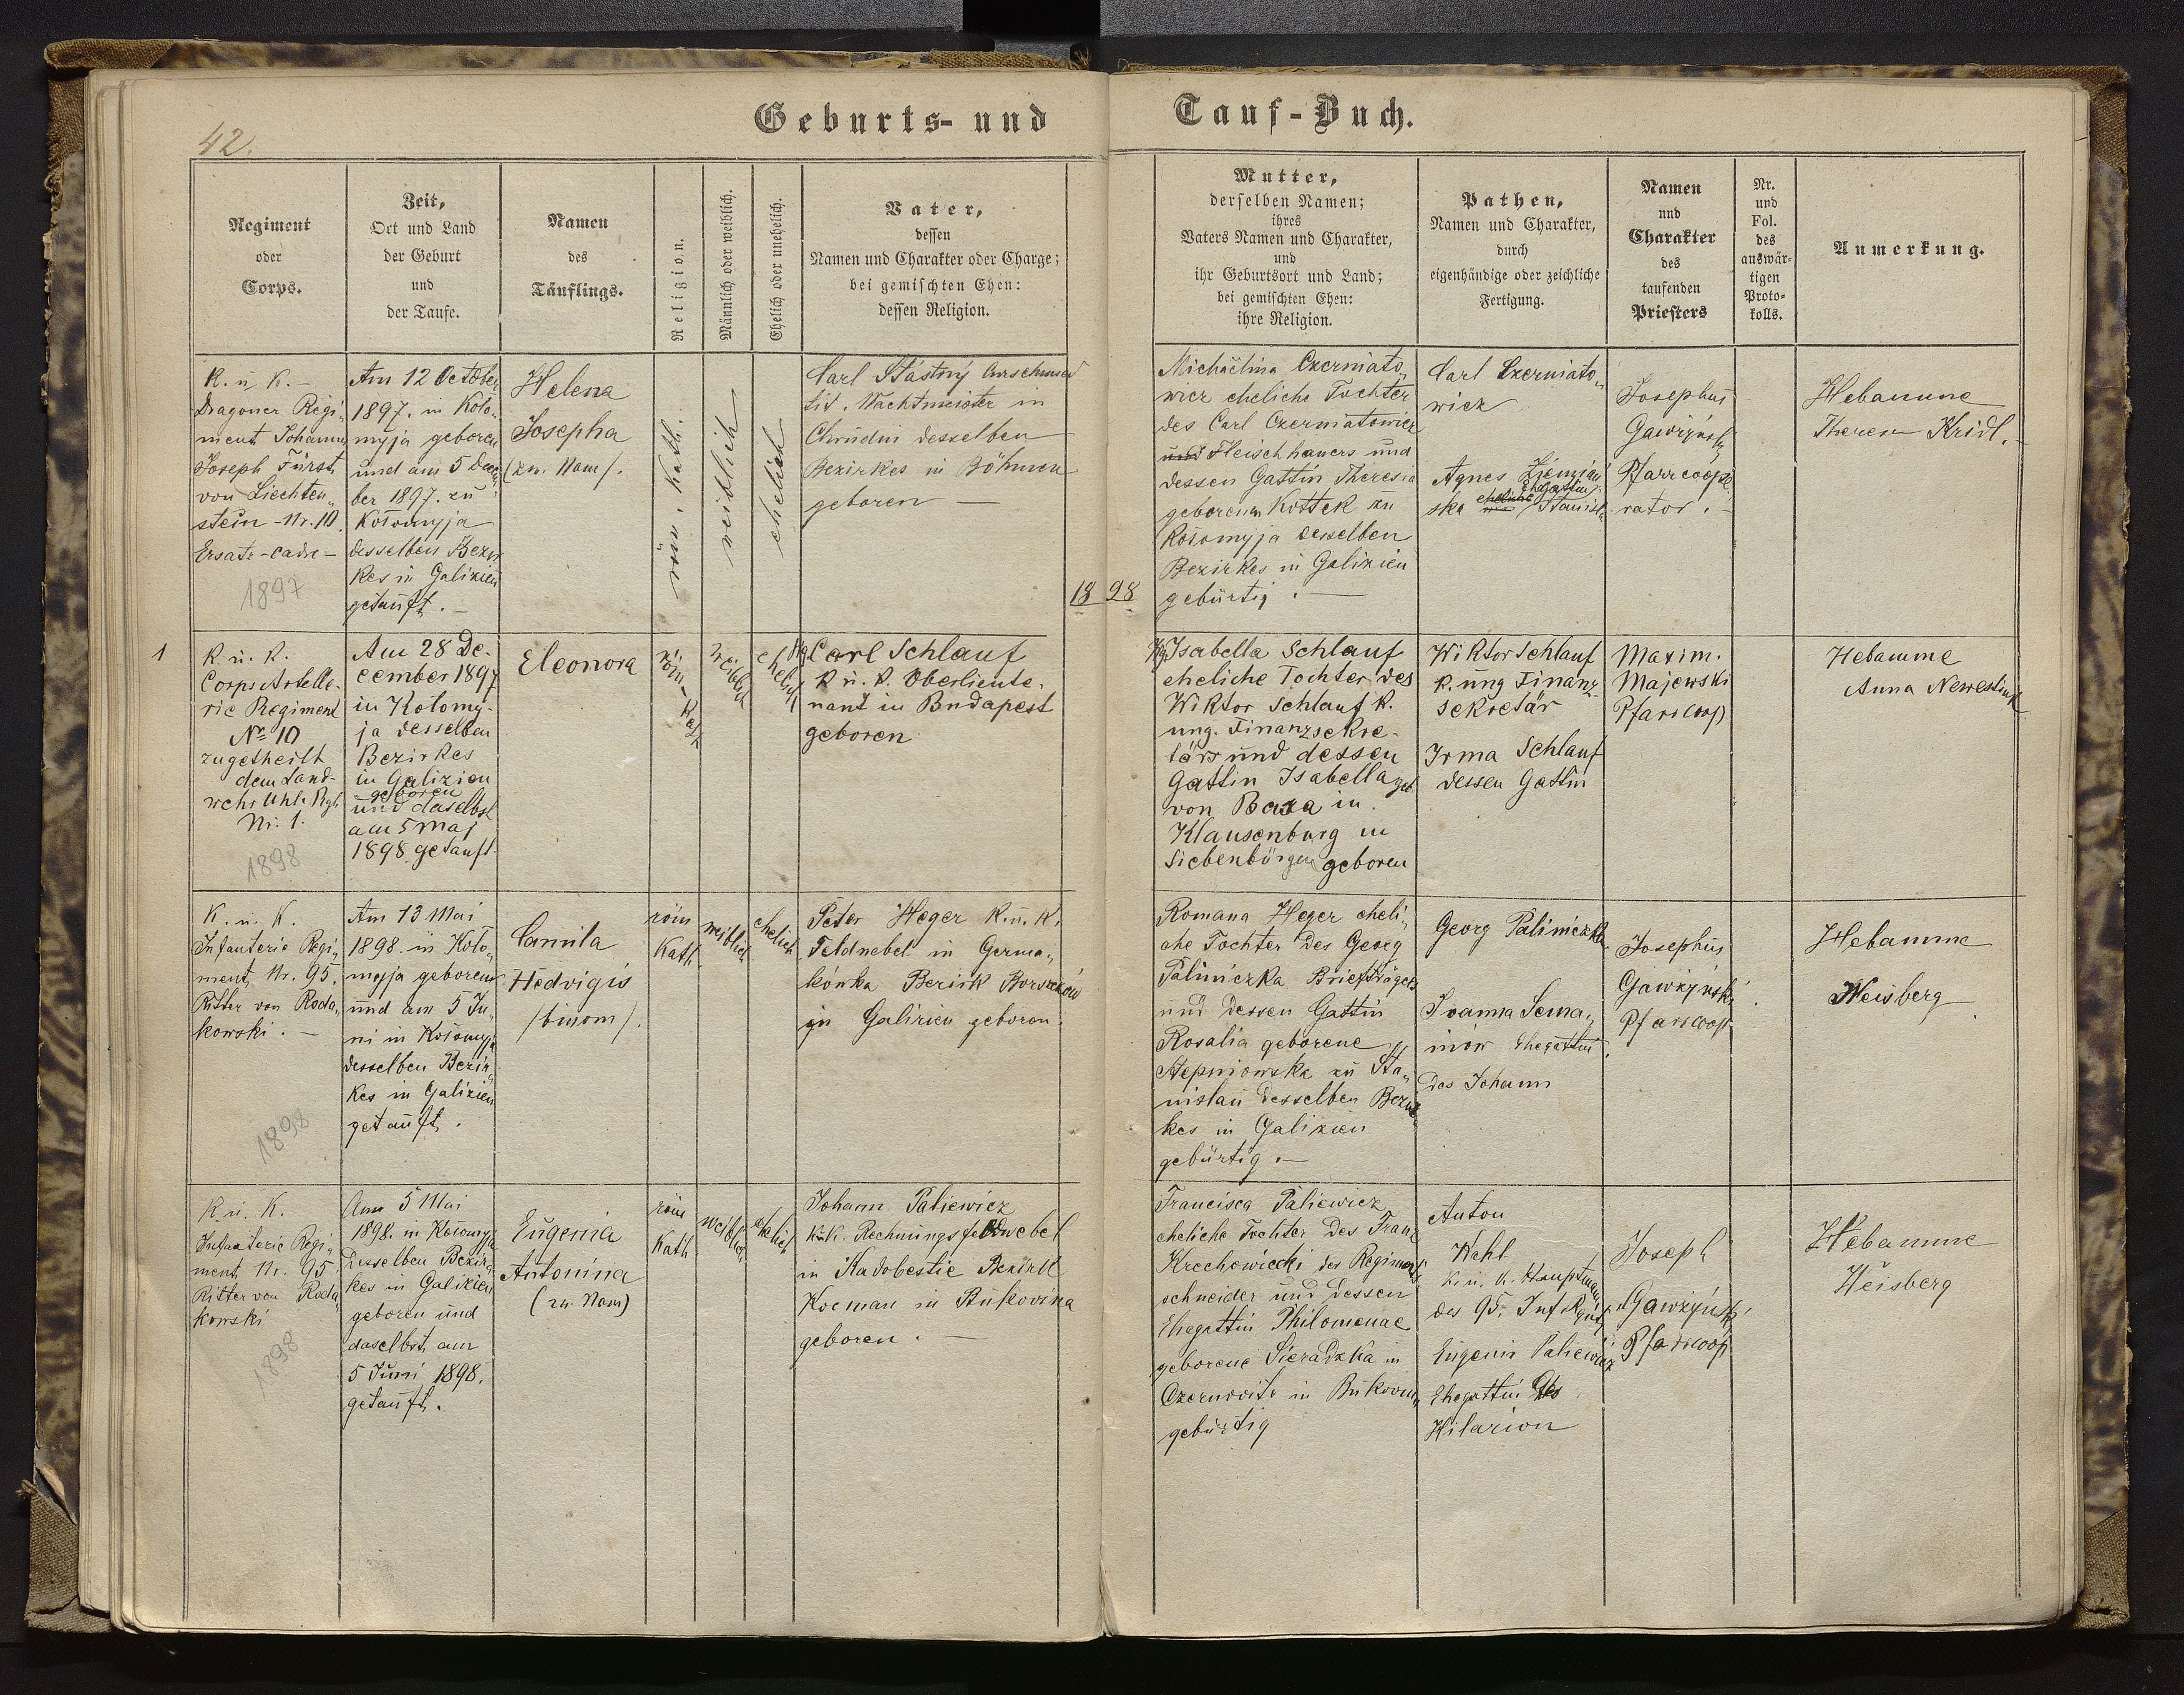 Geburts- und Tauf-Buch.
42.
Regiment
oder
Corps.
Zeit,
Ort und Land
der Geburt
und
der Taufe.
Namen
des
Täuflings.
Religion.
Männlich oder weiblich.
Ehelich oder unehelich.
Vater,
dessen
Namen und Charakter oder Charge;
bei gemischten Ehen:
dessen Religion.
Mutter,
derselben Namen;
ihres
Vaters Namen und Charakter,
und
ihr Geburtsort und Land;
bei gemischten Ehen:
ihre Religion.
Pathen,
Namen und Charakter,
durch
eigenhändige oder zeichliche
Fertigung.
Namen
und
Charakter
des
taufenden
Priesters
Nr.
und
Fol.
des
auswär-
tigen
Proto-
kolls.
Anmerkung.
K. u. K. –
Dragoner Regi„
ment Johann
Joseph Fürst
von Liechten„
stein - Nr. 10.
Ersatz-cadre –
1897
Am 12 October
1897. in Koło„
myja geboren
und am 5 Decem
ber 1897. zu
Kołomyja
desselben Bezir
kes in Galizien
getauft. –
Helena
Josepha
(zw. Nam).
röm. Kath.
weiblich
ehelich
Carl Stástný
tit. Wachtmeister in
Chrudin desselben
Bezirkes in Böhmen
geboren –
Michäelina Czerniato„
wicz eheliche Tochter
des Carl Czerniatowicz
und Fleischhauers und
dessen Gattin Theresia
geborenen Kottek zu
Kołomyja desselben
Bezirkes in Galizien
gebürtig. –
Carl Czerniato„
wicz
Agnes
ska Ehegattin
Josephus
Gawrzyński
Pfarrcoope
rator. –
Hebamme
Theresa Kridl. –
1898
1
K. u. K.
Corps Artille-
rie Regiment
No 10
zugetheilt
dem Land-
wehr Uhl. Rgt.
Nr. 1.
1898
Am 28 De-
cember 1897
in Kołomy-
ja desselben
Bezirkes
in Galizien
geboren
und daselbst
am 5 Maj
1898 getauft.
Eleonora
röm-
Kath
weiblich
ehelich
Carl Schlauf
K. u. K. Oberlieute-
nant in Budapest
geboren
Isabella Schlauf
eheliche Tochter des
Wiktor Schlauf K.
ung. Finanzsekre-
tärs und dessen
Gattin Isabella geb
von Baxa in
Klausenburg in
Siebenbürgen geboren
Wiktor Schlauf
K. ung Finanz-
sekretär
Irma Schlauf
dessen Gattin
Maxim.
Majewski
Pfarrcoop
Hebamme
Anna
K. u. K.
Infanterie Regi„
ment, Nr. 95.
Ritter von Roda„
kowski. –
1898
Am 13 Mai
1898. in Koło„
myja geboren
und am 5 Ju„
ni in Kołomyja
desselben Bezir„
kes in Galizien
getauft.
Camila
Hedvigis
/binom/.
röm
Kath
weiblich
ehelich
Peter Heger K. u. K.
Feldwebel in Germa„
kówka Bezirk Borszczów
in Galizien geboren.
Romana Heger eheli„
che Tochter des Georg
Paliniczka Briefträgers
und dessen Gattin
Rosalia geborene
Stepniowska zu Sta„
nislau desselben Bezir
kes in Galizien
gebürtig. –
Georg Paliniczka
Joanna Sema„
niów Ehegattin
des Johann
Josephus
Gawrzyński
Pfarrcoop
Hebamme
Weisberg
K. u. K.
Infanterie Regi„
ment, Nr. 95
Ritter von Roda„
kowski
1898
Am 5 Mai
1898. in Kołomyja
desselben Bezir„
kes in Galizien
geboren und
daselbst am
5 Juni 1898.
getauft.
Eugenia
Antonina
(zw. Nam)
röm
Kath
weiblich
ehelich
Johann Paliewicz
K.u.K. Rechnungsfeldwebel
in Kadobestie Bezirk
Kocman in Bukovina
geboren. –
Francisca Paliewicz
eheliche Tochter des Franz
Krechowiecki des Regiments
schneider und dessen
Ehegattin Philomenae
geborene Sieradzka in
Czernowitz in Bukowin„
gebürtig
Anton
Wahl
K. u. K. Hauptmann
des 95. Inf. Rgmts
Eugenie Paliewicz
Ehegattin des
Hilarion
Joseph
Gawrzyński
Pfarrcoop
Hebamme
Weisberg